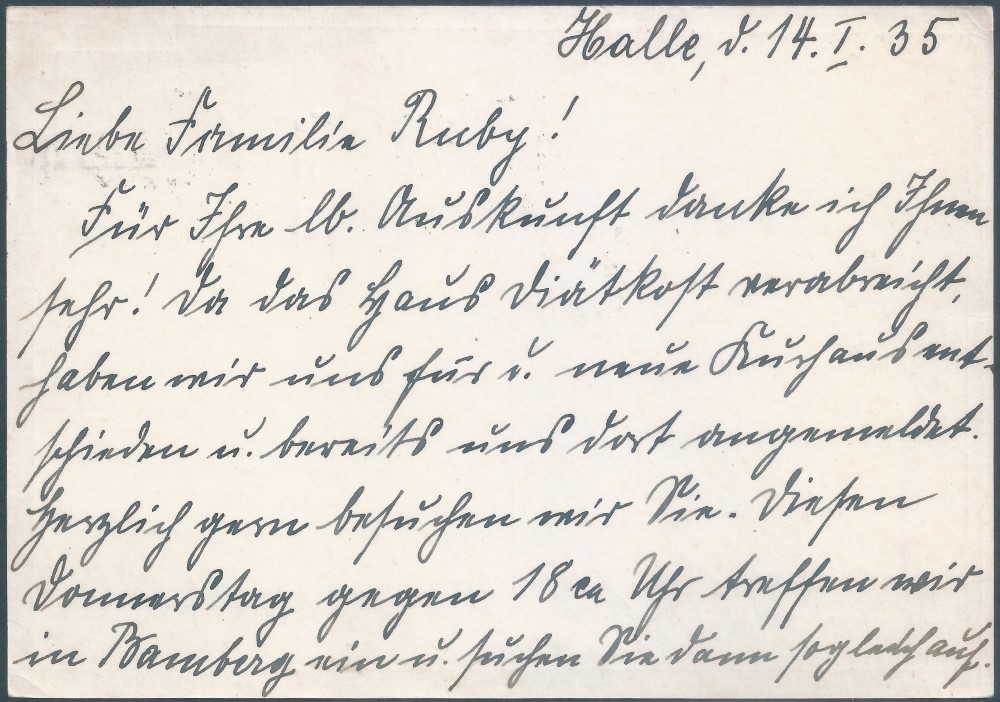 Halle, d. 14. I. 35
Liebe Familie Ruby!
Für Ihre lb. Auskunft danke ich Ihnen
sehr! Da das Haus Diätkost verabreicht,
haben wir uns für d. neue Kurhaus ent-
schieden u. bereits uns dort angemeldet.
Herzlich gern besuchen wir Sie. Diesen
Donnerstag gegen 18 ca Uhr treffen wir
in Bamberg ein u. suchen Sie dann sogleich auf.